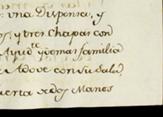 una Dispensa, y
y tres Chapas con
Ayud.te y demas familia
de Adove con su Sala,
puerta de dos Manos